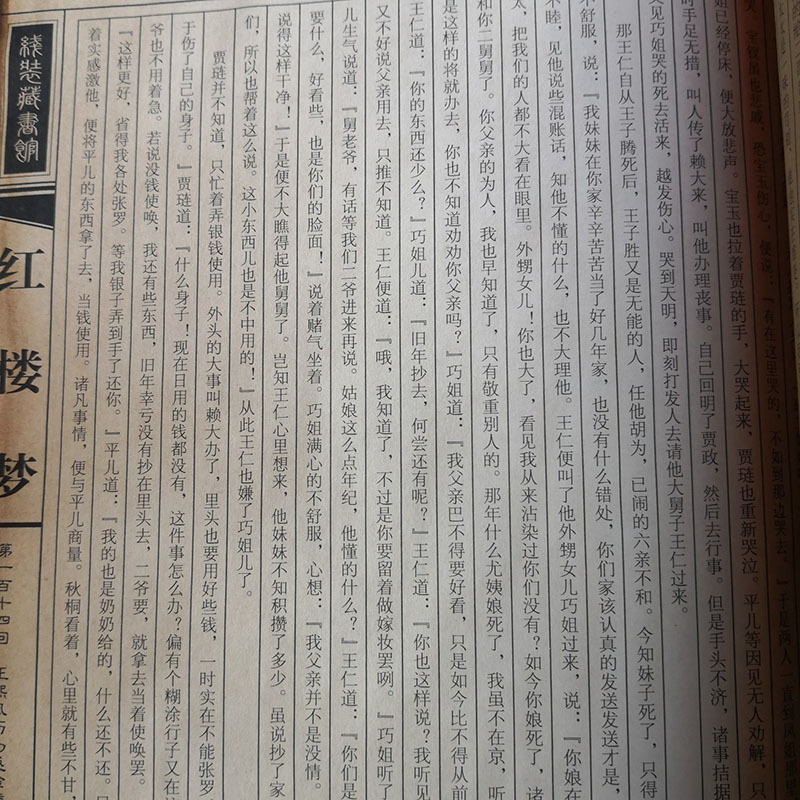 哭，宝钗虽也悲戚，恐宝玉伤心，便说：『有在这里哭的，不如到那边哭去。』于是两人一直到凤姐那里
姐已经停床，便大放悲声。宝玉也拉着贾琏的手，大哭起来，贾琏也重新哭泣。平儿等因见无人劝解，只
时手足无措，叫人传了赖大来，叫他办理丧事。自己回明了贾政，然后去行事。但是手头不济，诸事拮据
又见巧姐哭的死去活来，越发伤心。哭到天明，即刻打发人去请他大舅子王仁过来。
那王仁自从王子腾死后，王子胜又是无能的人，任他胡为，已闹的六亲不和。今知妹子死了，只得
不舒服，说：『我妹妹在你家辛辛苦苦当了好几年家，也没有什么错处，你们家该认真的发送发送才是，
不睦，见他说些混账话，知他不懂的什么，也不大理他。王仁便叫了他外甥女儿巧姐过来，说：『你娘在
太，把我们的人都不大看在眼里。外甥女儿！你也大了，看见我从来沾染过你们没有？如今你娘死了，诸
和你二舅舅了。你父亲的为人，我也早知道了，只有敬重别人的。那年什么尤姨娘死了，我虽不在京，听
是这样的将就办去，你也不知道劝劝你父亲吗？』巧姐道：『我父亲巴不得要好看，只是如今比不得从前
王仁道：『你的东西还少么？』巧姐儿道：『旧年抄去，何尝还有呢？』王仁道：『你也这样说？我听见
又不好说父亲用去，只推不知道。王仁便道：『哦，我知道了，不过是你要留着做嫁妆罢咧。』巧姐听了
儿生气说道：『舅老爷，有话等我们二爷进来再说。姑娘这么点年纪，他懂的什么？』王仁道：『你们是
要什么，好看些，也是你们的脸面！』说着赌气坐着。巧姐满心的不舒服，心想：『我父亲并不是没情。
说得这样干净！』于是便不大瞧得起他舅舅了。岂知王仁心里想来，他妹妹不知积攒了多少。虽说抄了家
们，所以也帮着这么说。这小东西儿也是不中用的！』从此王仁也嫌了巧姐儿了。
贾琏并不知道，只忙着弄银钱使用。外头的大事叫赖大办了，里头也要用好些钱，一时实在不能张罗
于伤了自己的身子。』贾琏道：『什么身子！现在日用的钱都没有，这件事怎么办？偏有个糊涂行子又在
爷也不用着急。若说没钱使唤，我还有些东西，旧年幸亏没有抄在里头去，二爷要，就拿去当着使唤罢。
『这样更好，省得我各处张罗。等我银子弄到手了还你。』平儿道：『我的也是奶奶给的，什么还不还。只
着实感激他，便将平儿的东西拿了去，当钱使用。诸凡事情，便与平儿商量。秋桐看着，心里就有些不甘，
线装藏书馆
红楼梦
第一百十四回 王熙凤历幻